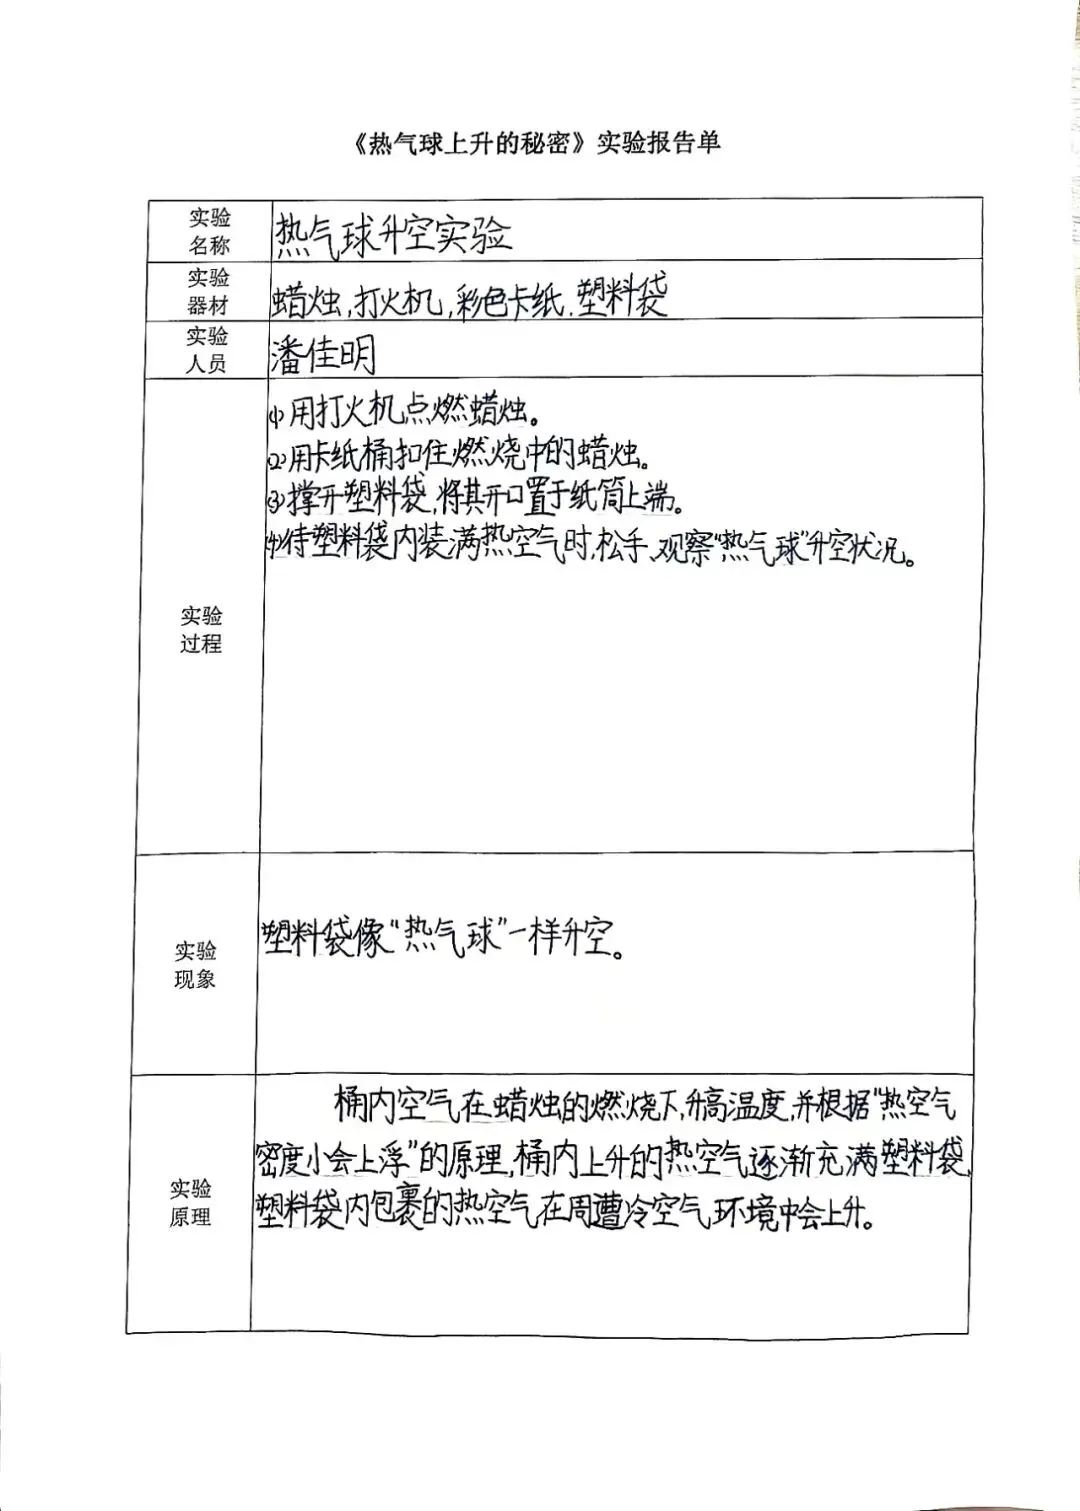 《热气球上升的秘密》实验报告单
实验
名称
热气球升空实验
实验
器材
蜡烛,打火机,彩色卡纸.塑料袋
实验
人员
潘佳明
实验
过程
(1)用打火机点燃蜡烛。
(2)用卡纸桶扣住燃烧中的蜡烛。
(3)撑开塑料袋,将其开口置于纸筒上端。
(4)待塑料袋内装满热空气时,松手、观察“热气球”升空状况。
实验
现象
塑料袋像“热气球”一样升空。
实验
原理
桶内空气在蜡烛的燃烧下,升高温度,并根据“热空气
密度小会上浮”的原理,桶内上升的热空气逐渐充满塑料袋,
塑料袋内包裹的热空气在周遭冷空气环境中会上升。